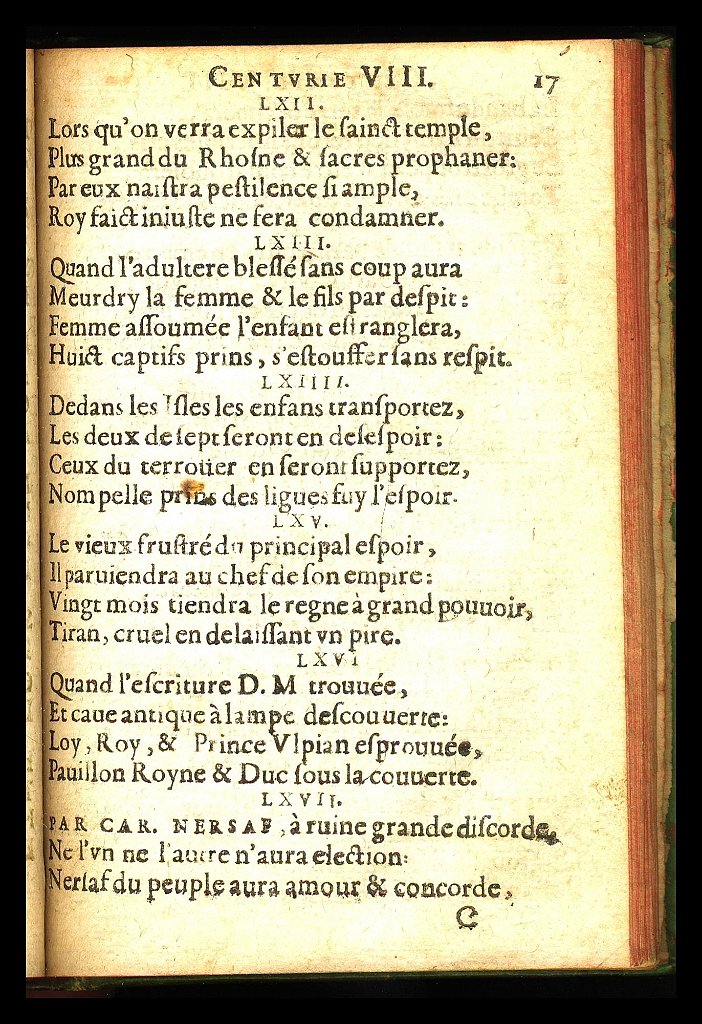 CENTVRIE VIII. 17
LXII.
Lors qu'on verra expiler le ſainct temple,
Plus grand du Rhoſne & ſacres prophaner:
Par eux naiſtra peſtilence ſi ample,
Roy faict iniuſte ne fera condamner.
LXIII.
Quand l'adultere bleſſé ſans coup aura
Meurdry la femme & le fils par deſpit:
Femme aſſoumée l'enfant eſtranglera,
Huict captifs prins, s'eſtouffer ſans reſpit.
LXIIII.
Dedans les Iſles les enfans tranſportez,
Les deux de ſept ſeront en deſeſpoir:
Ceux du terrouer en ſeront ſupportez,
Nom pelle prins des ligues fuy l'eſpoir.
LXV.
Le vieux fruſtré du principal eſpoir,
Il paruiendra au chef de ſon empire:
Vingt mois tiendra le regne à grand pouuoir,
Tiran, cruel en delaiſſant vn pire.
LXVI
Quand l'eſcriture D. M trouuée,
Et caue antique à lampe deſcouuerte:
Loy, Roy, & Prince Vlpian eſprouuée,
Pauillon Royne & Duc ſous la couuerte.
LXVII.
PAR CAR. NERSAF, à ruine grande diſcorde,
Ne l'vn ne l'autre n'aura election:
Nerſaf du peuple aura amour & concorde,
C